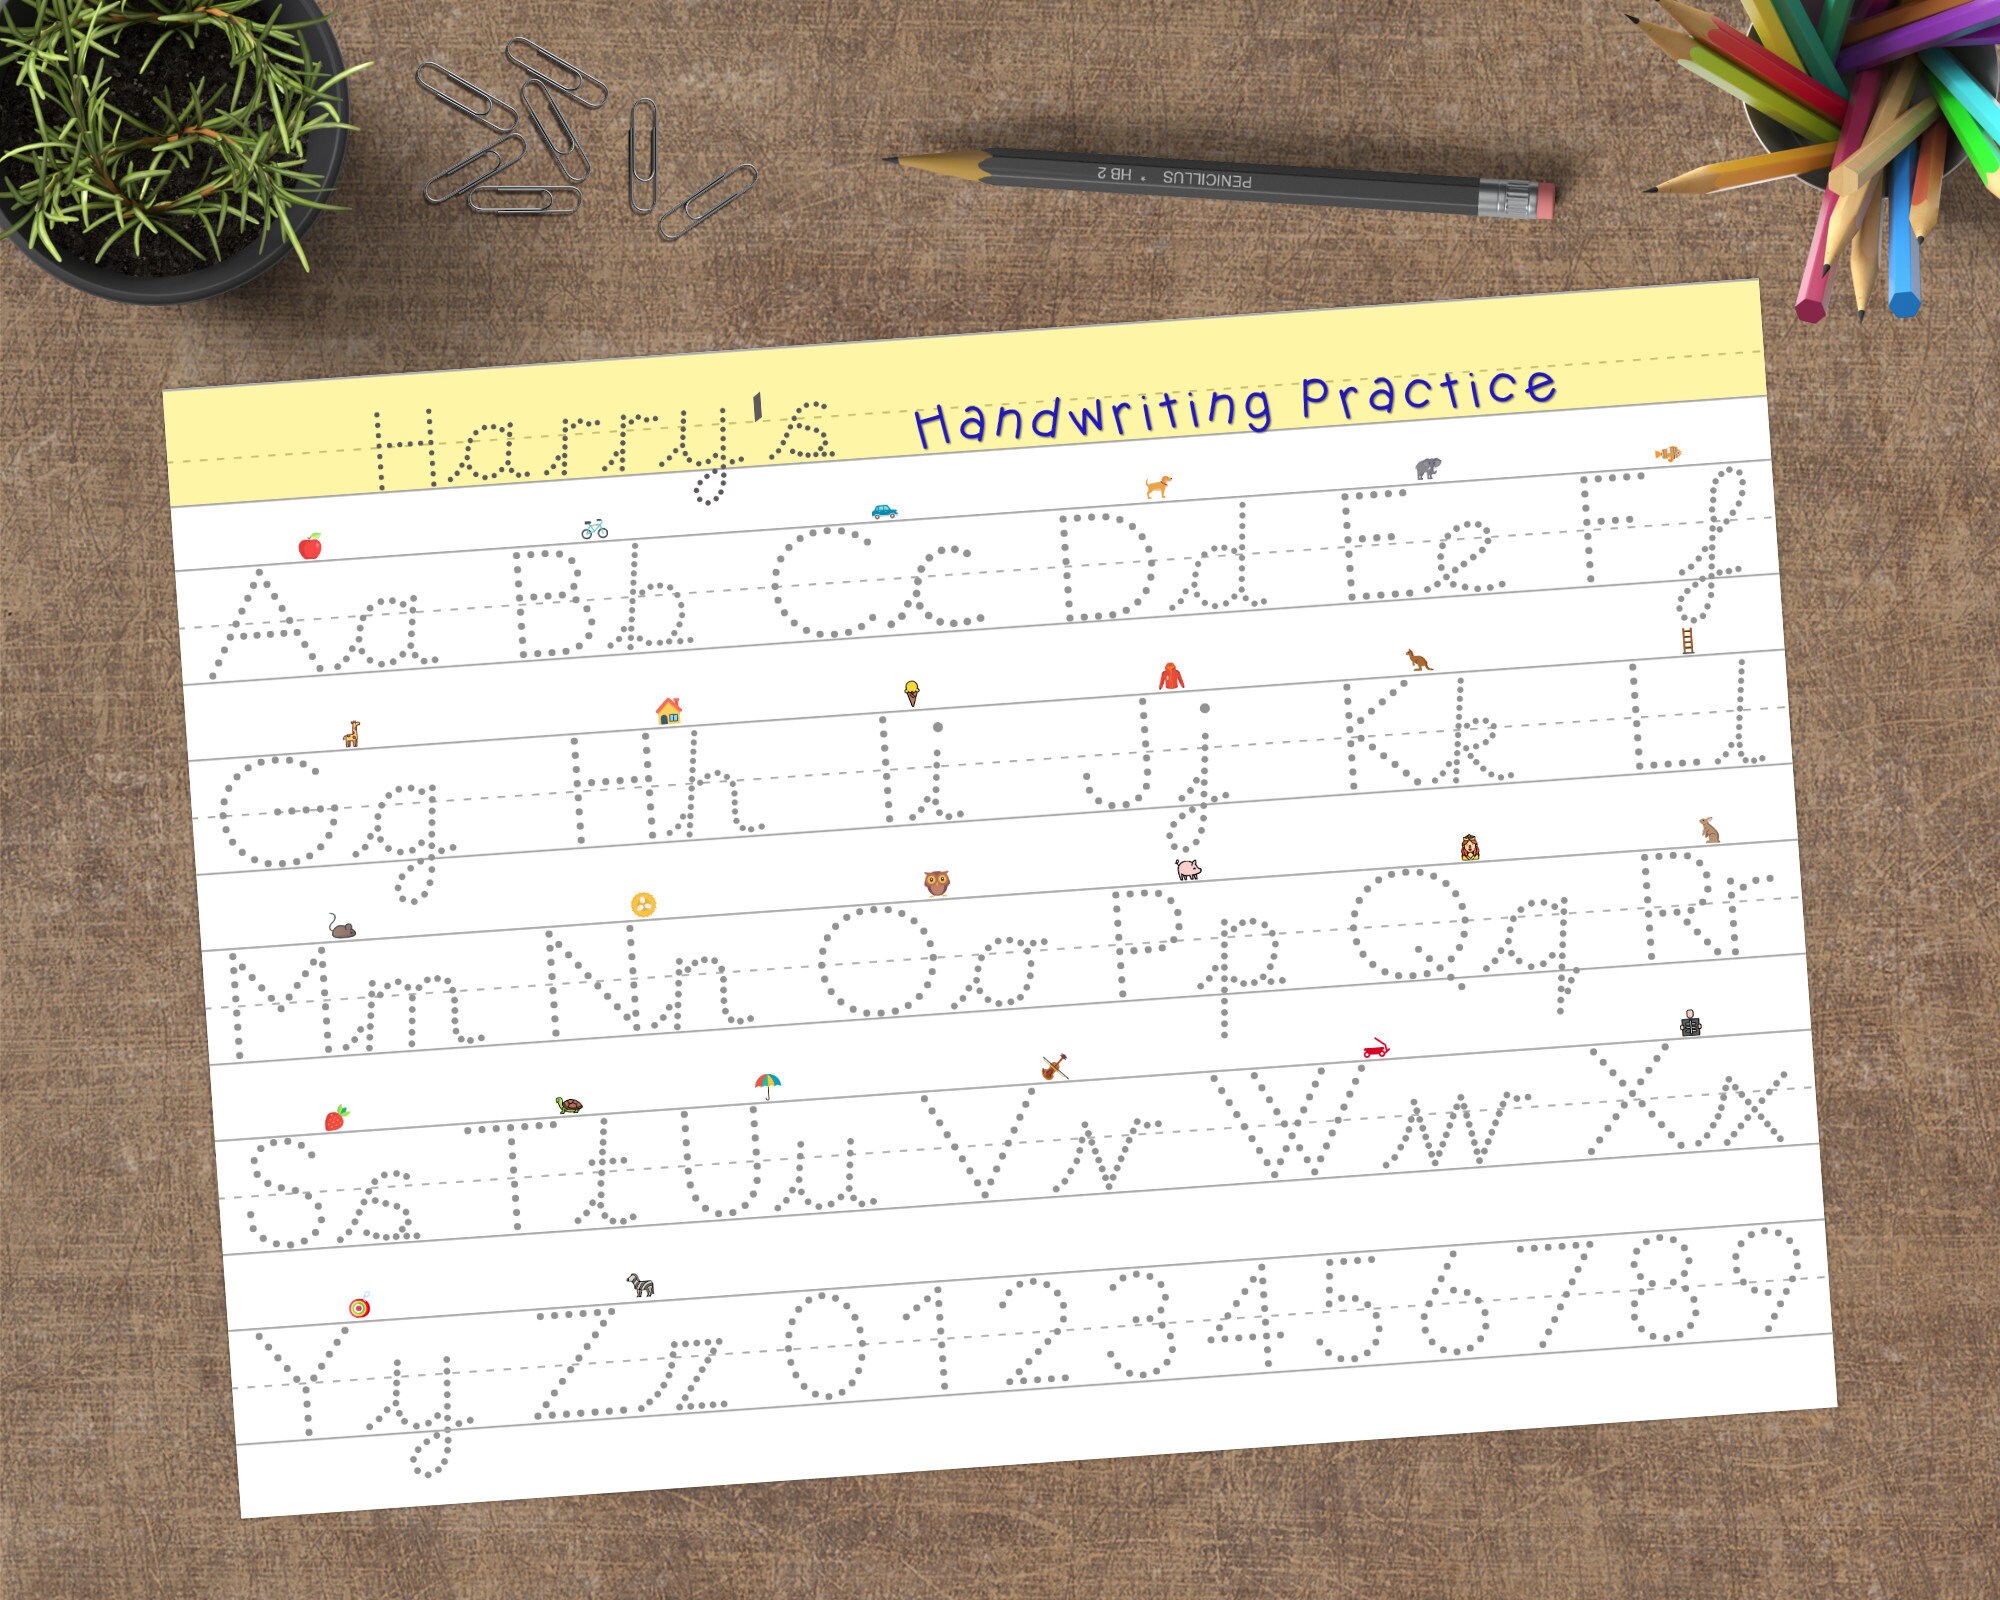 PENICILLUS * HB 2
Harry's Handwriting Practice
Aa Bb Cc Dd Ee Ff
Gg Hh Ii Jj Kk Ll
Mm Nn Oo Pp Qq Rr
Ss Tt Uu Vv Ww Xx
Yy Zz 0 1 2 3 4 5 6 7 8 9